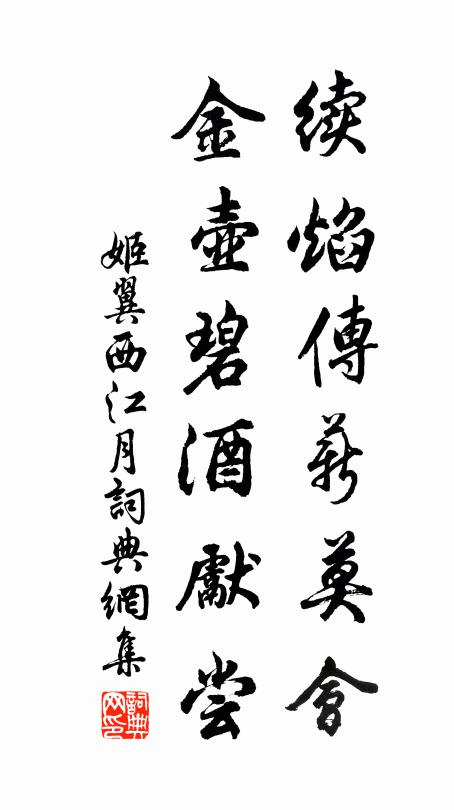 续焰傳薪莫會
金壺碧酒獻尝
姬翼西江月詞典網集
詞典网印